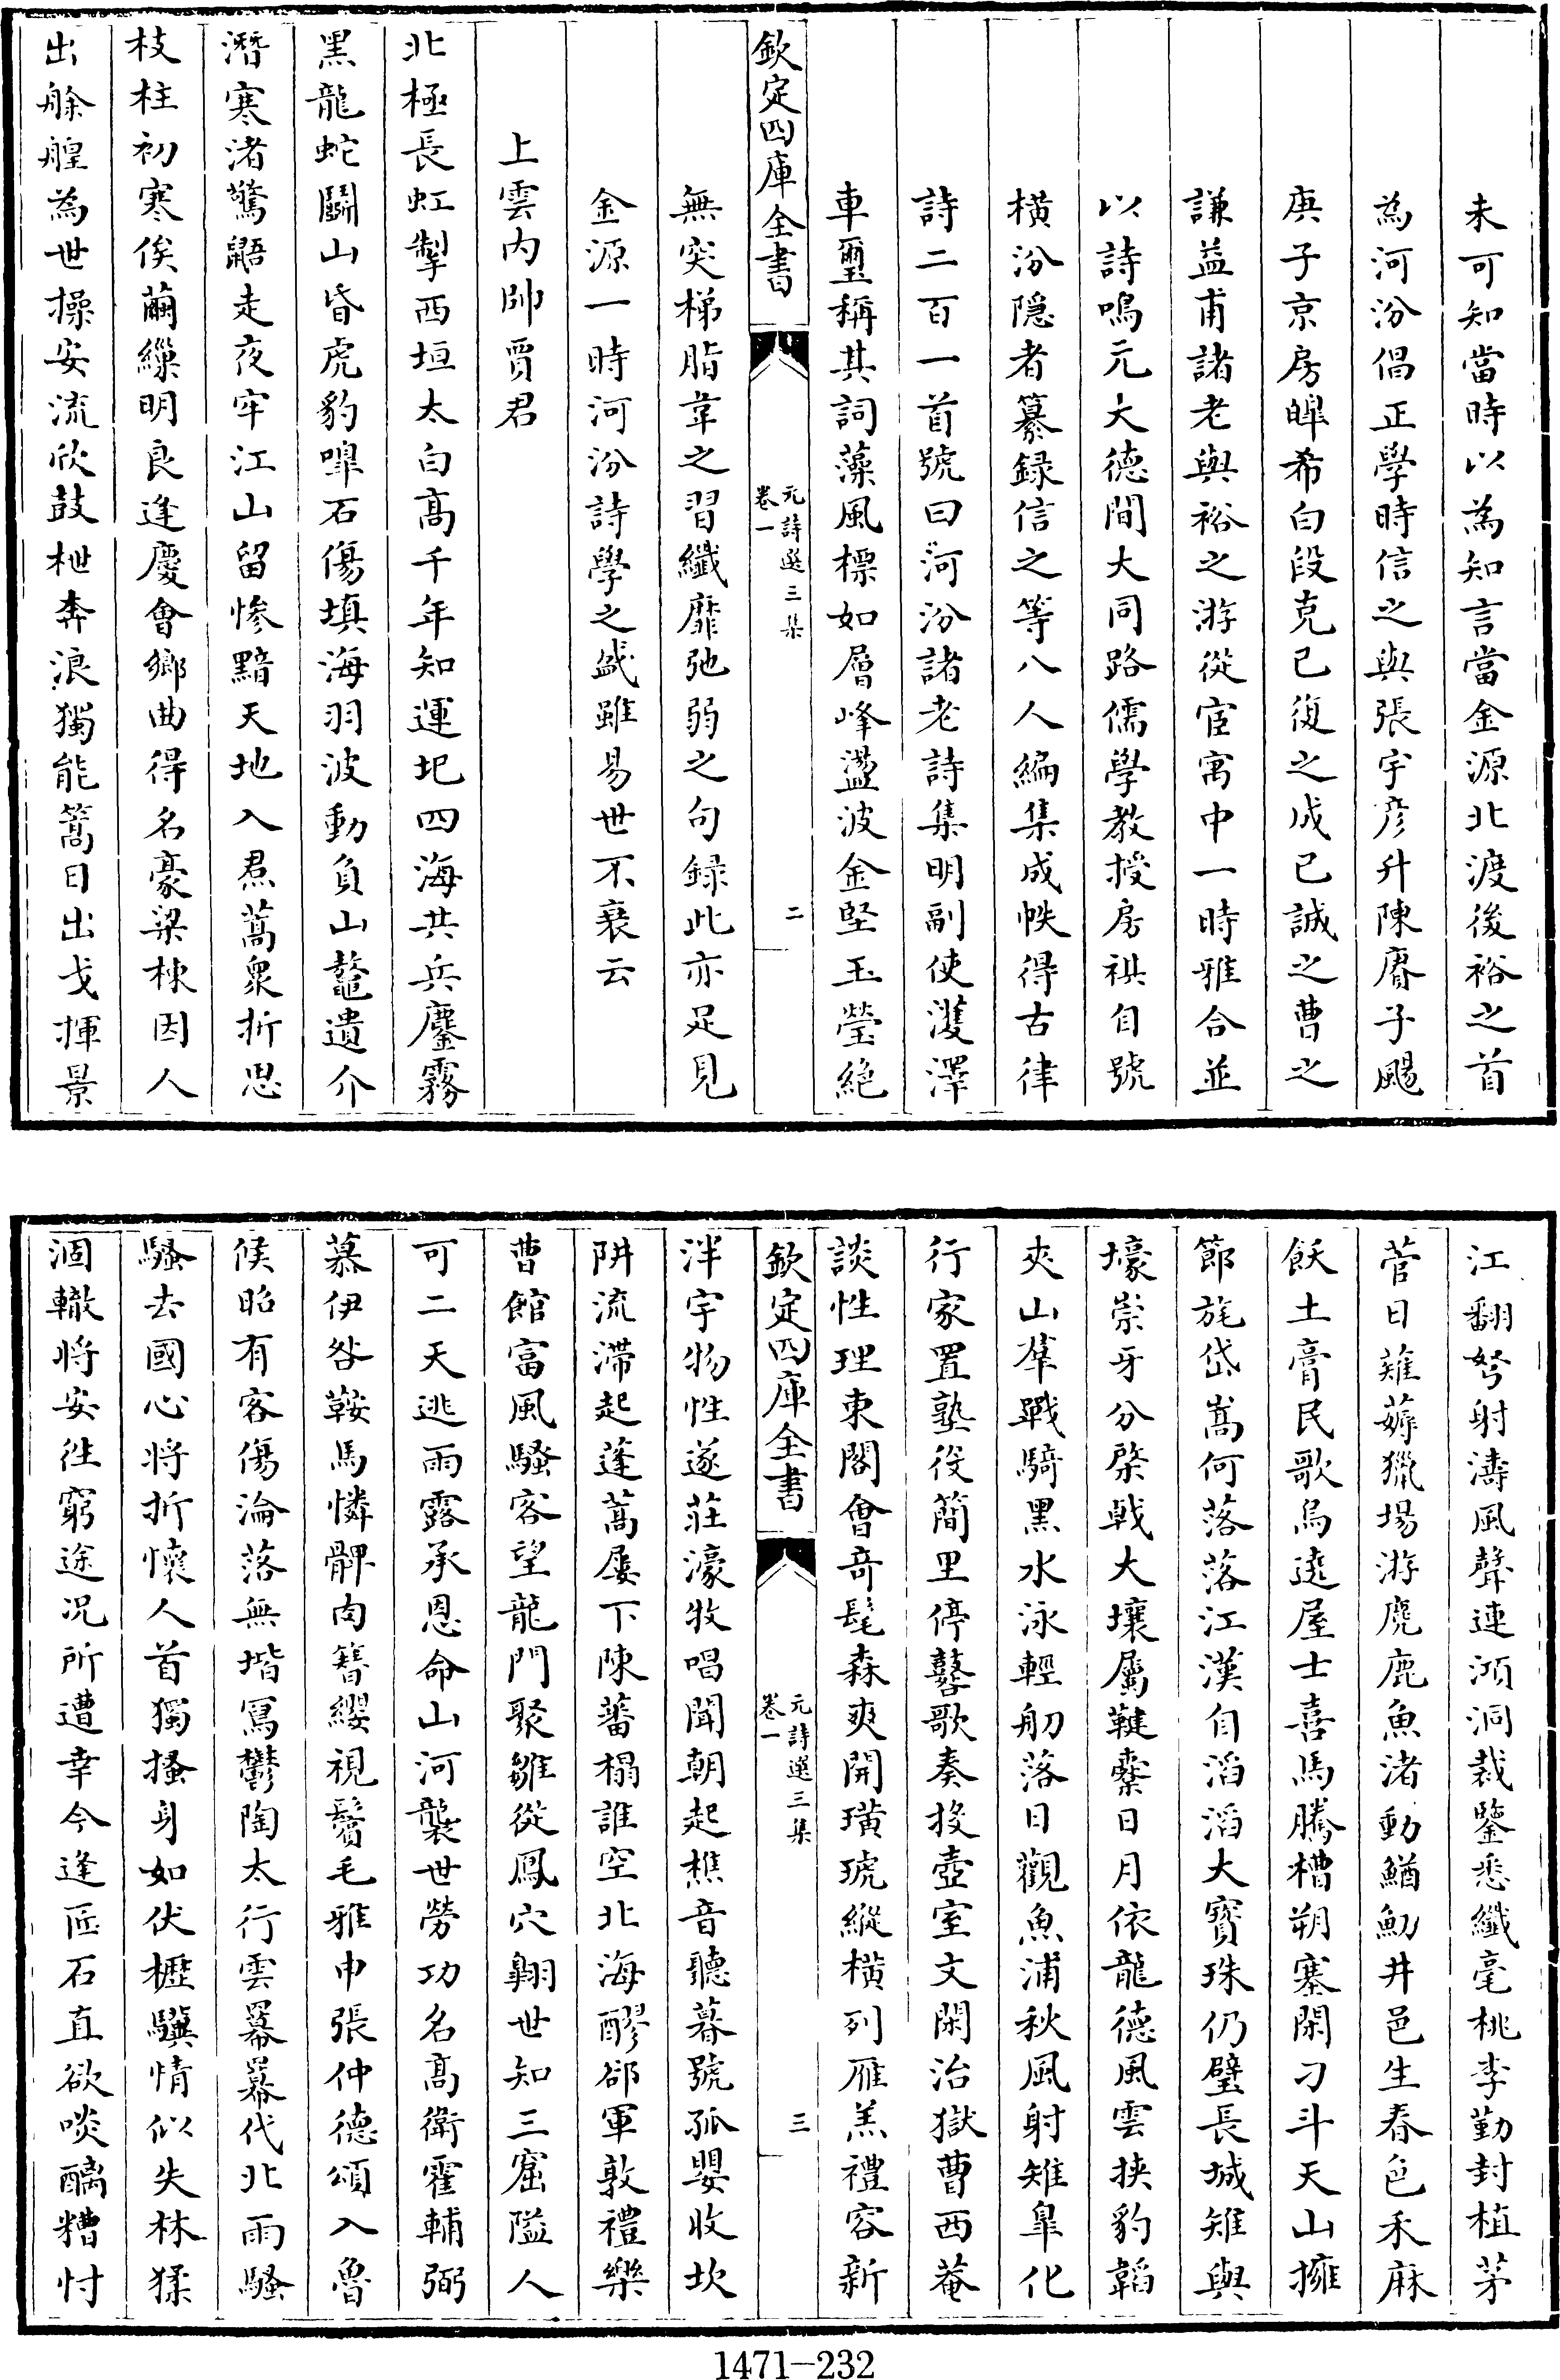 未可知當時以為知言當金源北渡後裕之首
為河汾倡正學時信之與張宇彦升陳賡子颺
庚子京房皡希白段克己復之成己誠之曹之
謙益甫諸老與裕之游從宦寓中一時雅合並
以詩鳴元大德間大同路儒學教授房祺自號
横汾隠者纂録信之等八人編集成帙得古律
詩二百一首號曰河汾諸老詩集明副使濩澤
車璽稱其詞藻風標如層峰盪波金堅玉瑩絶
欽定四庫全書
元詩選三集
卷一
二
無突梯脂韋之習纖靡弛弱之句録此亦足見
金源一時河汾詩學之盛雖易世不衰云
上雲内帥賈君
北極長虹掣西垣太白髙千年知運圯四海共兵鏖霧
黒龍蛇鬭山昏虎豹嘷石傷填海羽波動負山鼇遺介
潛寒渚驚鼯走夜牢江山留慘黯天地入焄蒿衆折思
枝柱初寒俟繭繅明良逢慶會鄉曲得名豪梁棟因人
出艅艎為世操安流欣鼓枻奔浪獨能篙日出戈揮景
江翻弩射濤風聲連澒洞裁鑒悉纖毫桃李勤封植茅
菅日薙薅獵場游麂鹿魚渚動鰌魛井邑生春色禾麻
飫土膏民歌烏遶屋士喜馬騰槽朔塞閑刁斗天山擁
節旄岱嵩何落落江漢自滔滔大寳珠仍璧長城雉與
壕崇牙分棨戟大壤屬鞬櫜日月依龍德風雲挾豹韜
夾山羣戰騎黒水泳輕舠落日觀魚浦秋風射雉臯化
行家置塾役簡里停鼛歌奏投壺室文閑治獄曹西菴
談性理東閣會奇髦森爽開璜琥縱横列雁羔禮容新
欽定四庫全書
元詩選三集
卷一
三
泮宇物性遂莊濠牧唱聞朝起樵音聽暮號孤嬰收坎
阱流滯起蓬蒿屢下陳蕃榻誰空北海醪郤軍敦禮樂
曹館富風騷客望龍門聚雛從鳳穴翺世知三窟隘人
可二天逃雨露承恩命山河襲世勞功名髙衛霍輔弼
慕伊咎鞍馬憐髀肉簪纓視鬢毛雅申張仲德頌入魯
候昭有客傷淪落無堦寫鬱陶太行雲羃羃代北雨騷
騷去國心将折懷人首獨搔身如伏櫪驥情似失林猱
涸轍将安往窮途況所遭幸今逢匠石直欲啖醨糟忖
1471-232